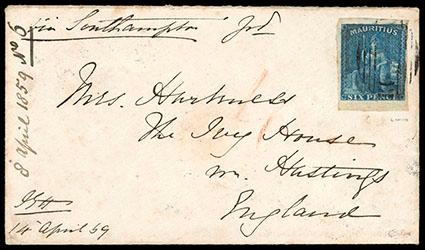 via Southampton
MAURITIUS
SIX PENCE
Mrs. Harkness
The Ivy House
nr. Hastings
England
8 April 1859 No 6
14 April 59